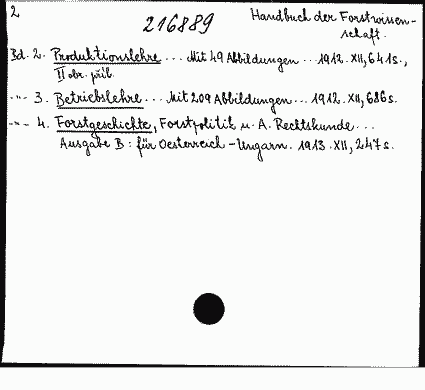 2
216889
Handbuch der Forstwissen-
schaft.
Bd. 2. Produktionslehre ... Mit 49 Abbildungen ... 1912. XII, 641 s.,
II obr. příl.
-"- 3. Betriebslehre ... Mit 209 Abbildungen ... 1912. XII, 686 s.
-"- 4. Forstgeschichte, Forstpolitik u. A. Rechtskunde ...
Ausgabe B: für Oesterreich-Ungarn. 1913. XII, 247 s.